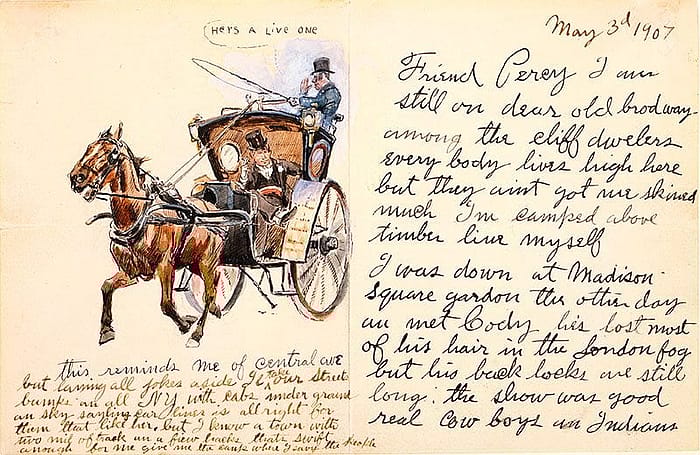 HERS A LIVE ONE
this reminds me of central ave
but laing all jokes aside Il take our street
bumps an all NY with cabs under ground
an sky sayling car lines is all right for
them that like her. but I know a town with
two mil of track an a few hacks thats swift
enough for me give me the camp where I savy the people
May 3d 1907
Friend Percy I am
still on dear old brodway
among the cliff dwelers
every body lives high here
but they aint got me skined
much Im camped above
timber line myself
I was down at Madison
Square gardon the other day
an met Cody hes lost most
of his hair in the London fog
but his back locks are still
long: the show was good
real cow boys an Indians